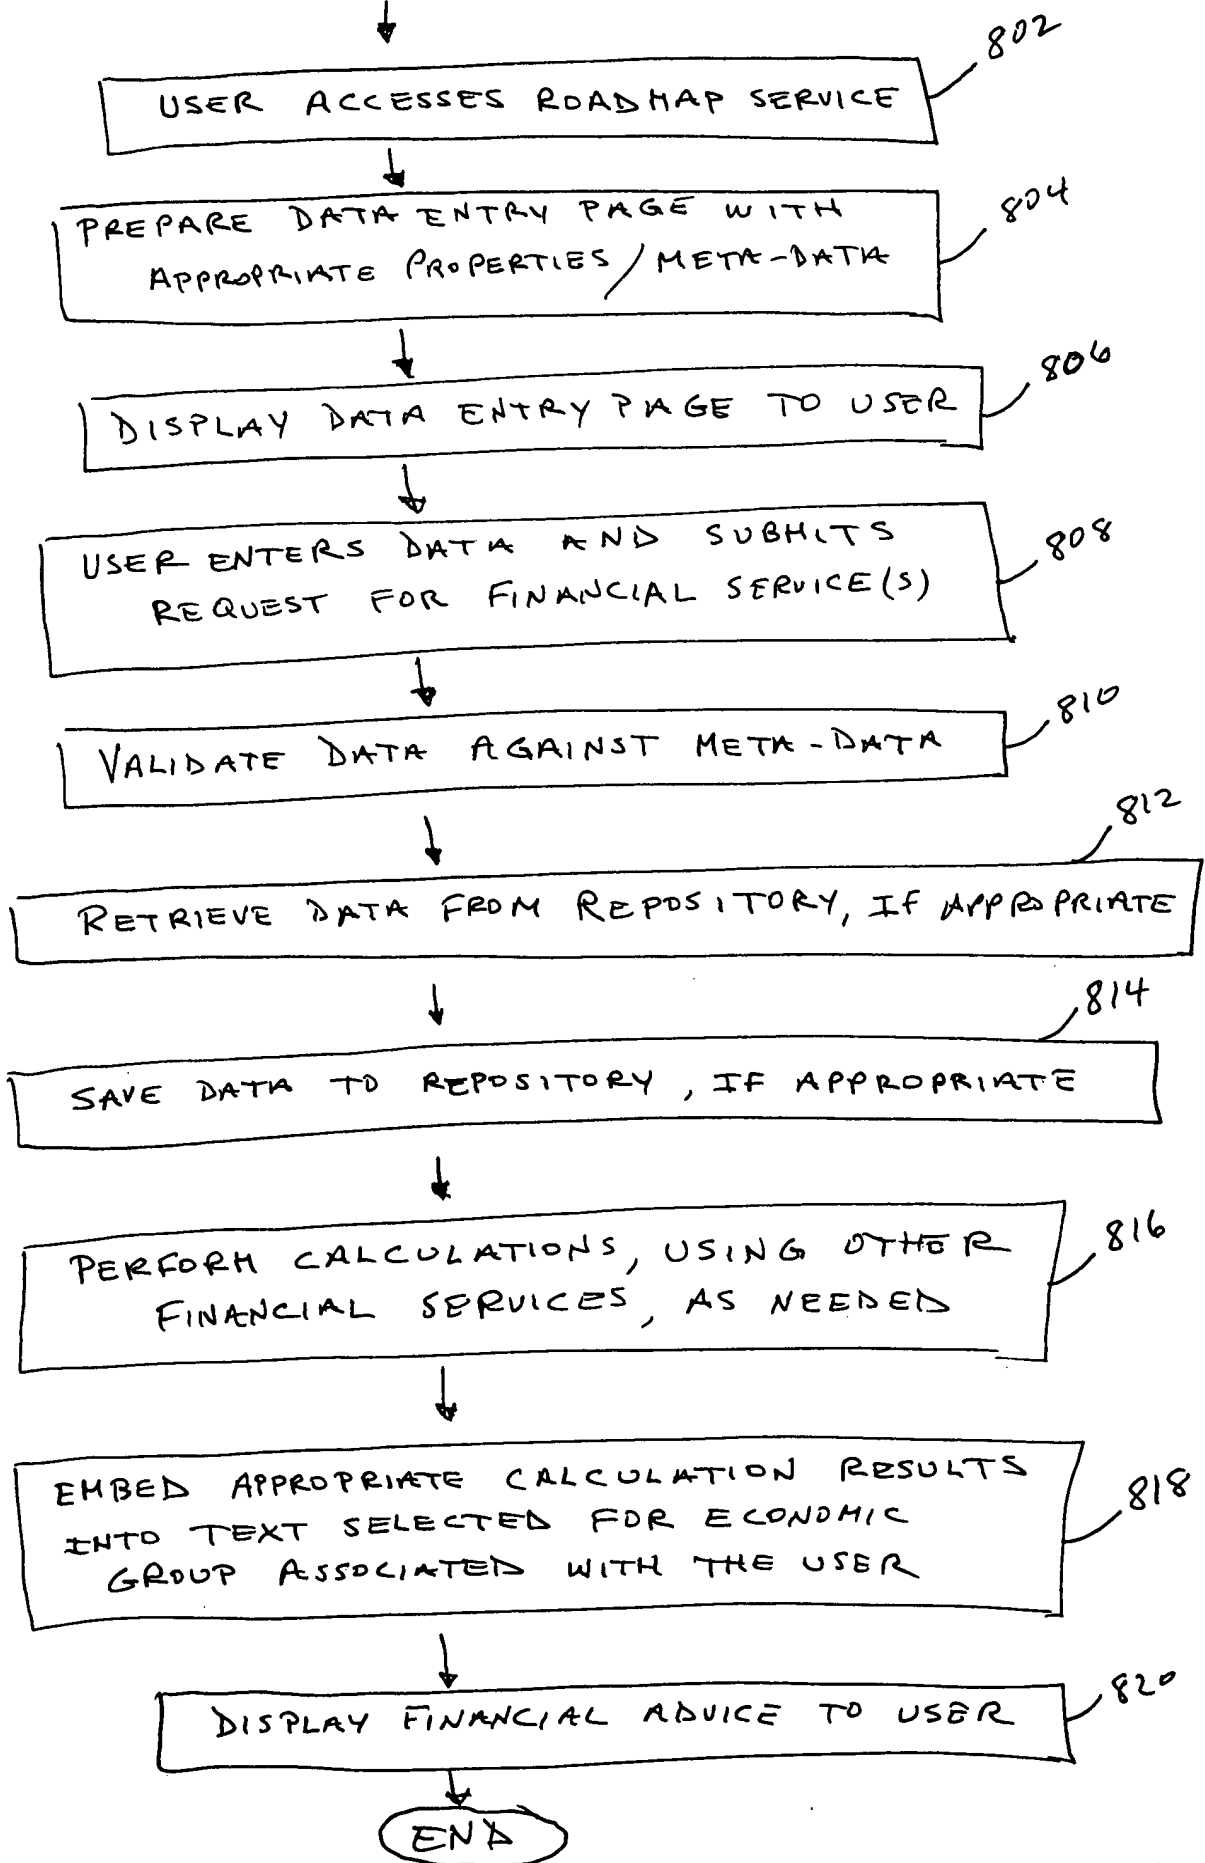 802
USER ACCESSES ROADMAP SERVICE
804
PREPARE DATA ENTRY PAGE WITH
APPROPRIATE PROPERTIES / META-DATA
806
DISPLAY DATA ENTRY PAGE TO USER
808
USER ENTERS DATA AND SUBMITS
REQUEST FOR FINANCIAL SERVICE(S)
810
VALIDATE DATA AGAINST META-DATA
812
RETRIEVE DATA FROM REPOSITORY, IF APPROPRIATE
814
SAVE DATA TO REPOSITORY, IF APPROPRIATE
816
PERFORM CALCULATIONS, USING OTHER
FINANCIAL SERVICES, AS NEEDED
818
EMBED APPROPRIATE CALCULATION RESULTS
INTO TEXT SELECTED FOR ECONOMIC
GROUP ASSOCIATED WITH THE USER
820
DISPLAY FINANCIAL ADVICE TO USER
END